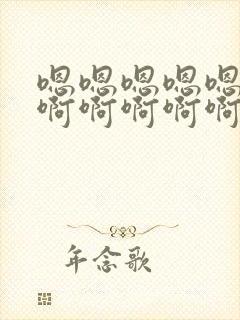 嗯嗯嗯嗯嗯
啊啊啊啊啊
年念歌